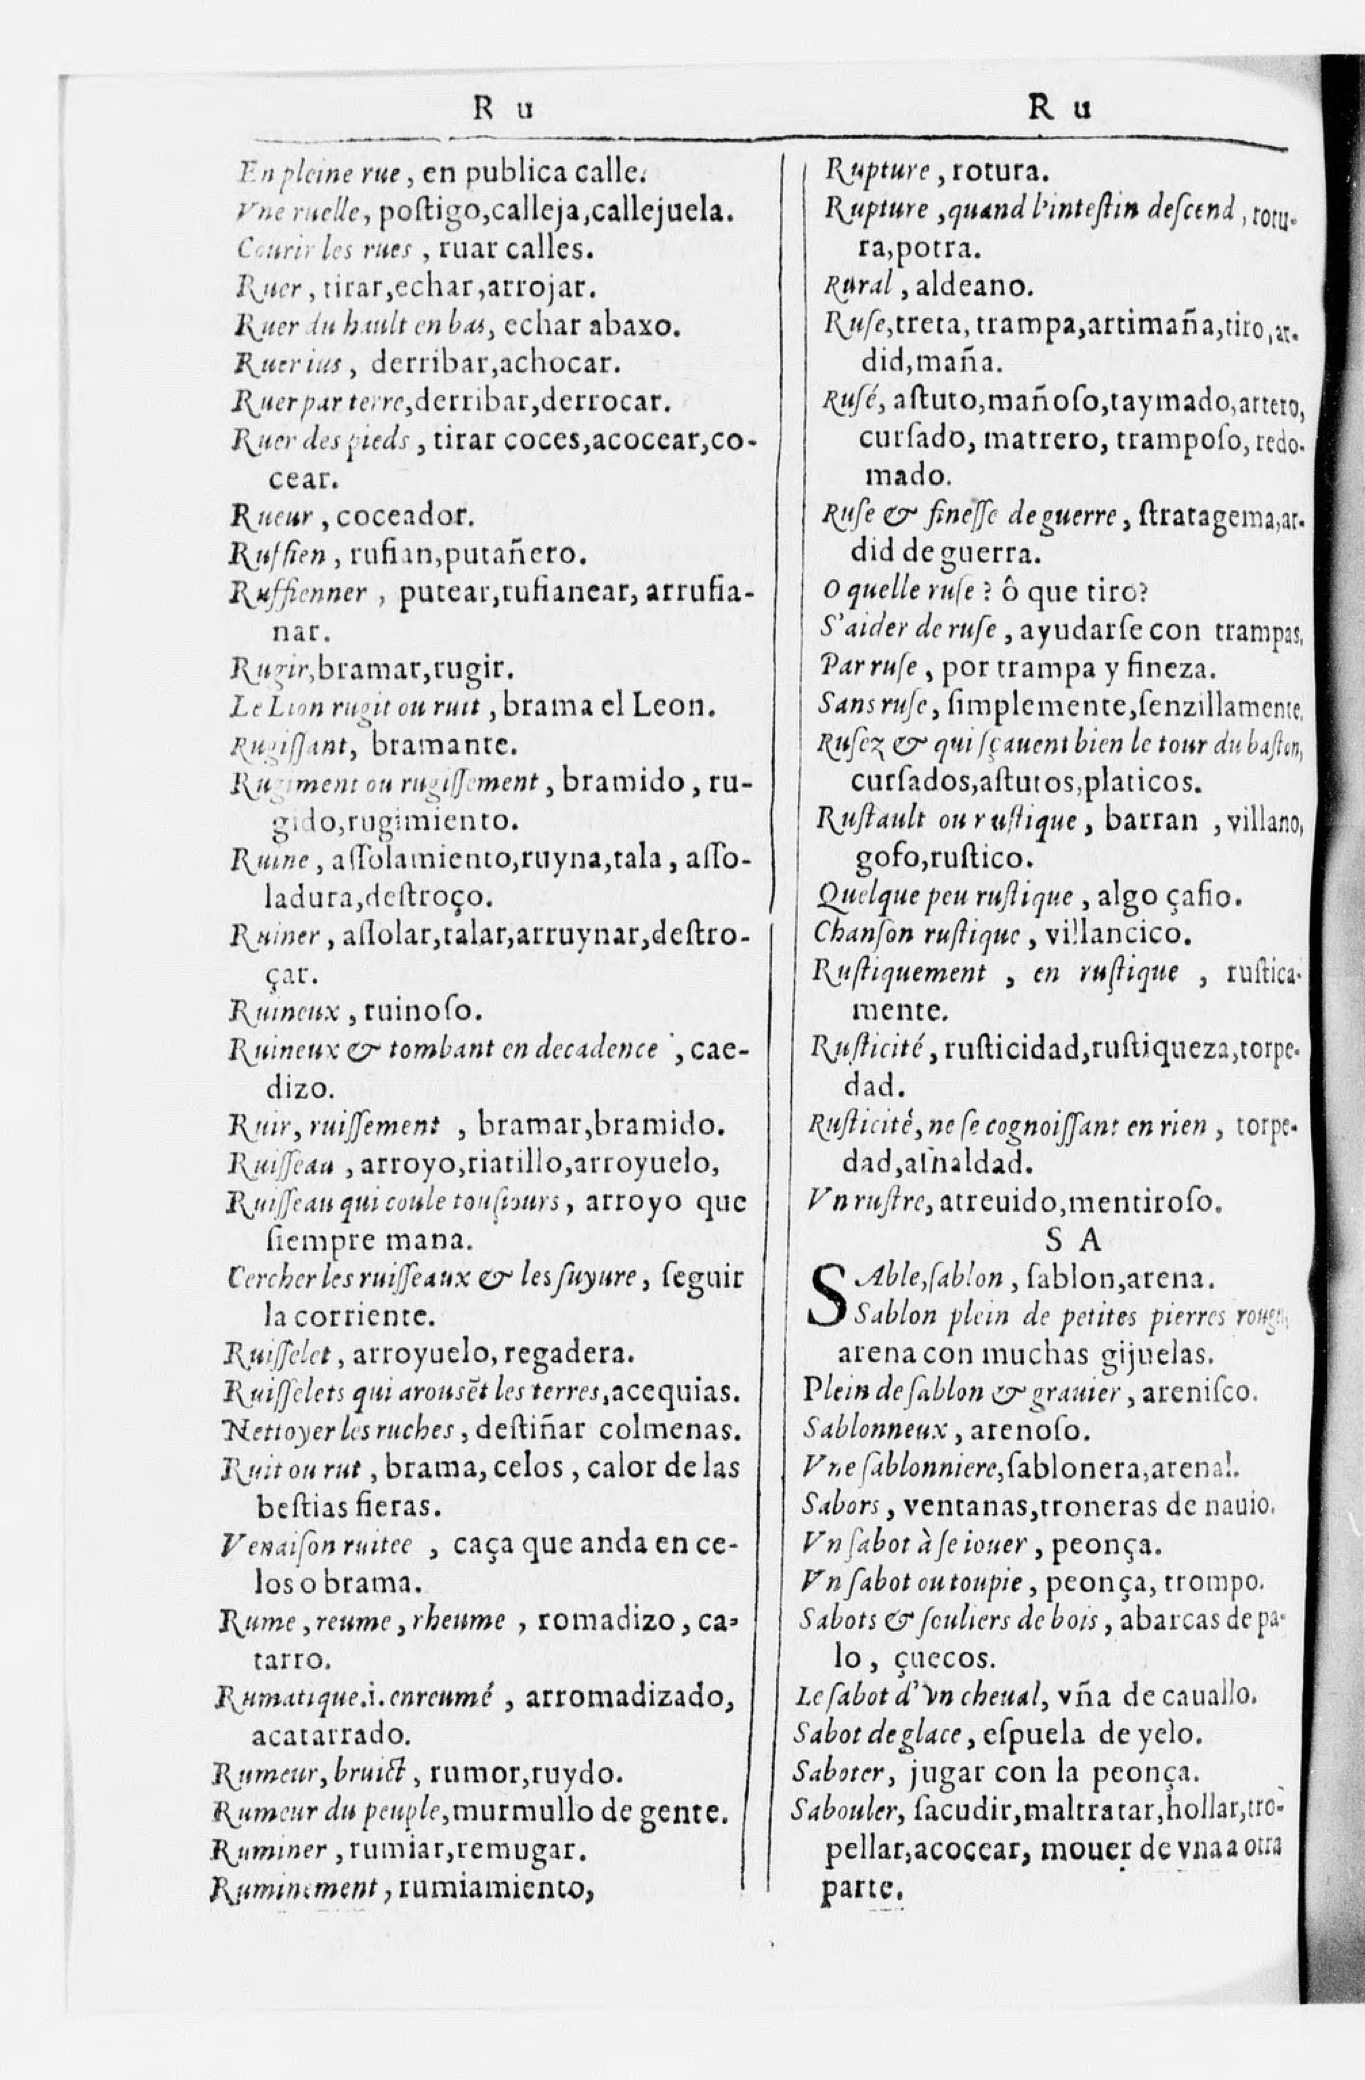 R u
En pleine rue, en publica calle.
Vne ruelle, poſtigo,calleja,callejuela.
Courir les rues, ruar calles.
Ruer, tirar,echar,arrojar.
Ruer du hault en bas, echar abaxo.
Ruer ius, derribar,achocar.
Ruer par terre,derribar,derrocar.
Ruer des pieds, tirar coces,acocear,co-
cear.
Rueur, coceador.
Ruffien, rufian,putañero.
Ruffienner, putear,rufianear, arrufia-
nar.
Rugir,bramar,rugir.
Le Lion rugit ou ruit, brama el Leon.
Rugiſſant, bramante.
Rugiment ou rugiſſement, bramido, ru-
gido,rugimiento.
Ruine, aſſolamiento,ruyna,tala, aſſo-
ladura,deſtroço.
Ruiner, aſſolar,talar,arruynar,deſtro-
çar.
Ruineux, ruinoſo.
Ruineux & tombant en decadence, cae-
dizo.
Ruir, ruiſſement, bramar,bramido.
Ruiſſeau, arroyo,riatillo,arroyuelo,
Ruiſſeau qui coule touſiours, arroyo que
ſiempre mana.
Cercher les ruiſſeaux & les ſuyure, ſeguir
la corriente.
Ruiſſelet, arroyuelo, regadera.
Ruiſſelets qui arousẽt les terres,acequias.
Nettoyer les ruches, deſtiñar colmenas.
Ruit ou rut, brama, celos, calor de las
beſtias fieras.
Venaiſon ruitee, caça que anda en ce-
los o brama.
Rume, reume, rheume, romadizo, ca-
tarro.
Rumatique.i. enreumé, arromadizado,
acatarrado.
Rumeur, bruict, rumor,ruydo.
Rumeur du peuple,murmullo de gente.
Ruminer, rumiar,remugar.
Ruminement, rumiamiento,
R u
Rupture, rotura.
Rupture, quand l'inteſtin deſcend, rotu-
ra,potra.
Rural, aldeano.
Ruſe,treta, trampa,artimaña,tiro, ar-
did,maña.
Ruſé, aſtuto,mañoſo,taymado,artero,
curſado, matrero, trampoſo, redo-
mado.
Ruſe & fineſſe de guerre, ſtratagema,ar-
did de guerra.
O quelle ruſe? ô que tiro?
S'aider de ruſe, ayudarſe con trampas.
Par ruſe, por trampa y fineza.
Sans ruſe, ſimplemente,ſenzillamente.
Ruſez & qui ſçauent bien le tour du baſton,
curſados,aſtutos,platicos.
Ruſtault ou ruſtique, barran, villano,
gofo,ruſtico.
Quelque peu ruſtique, algo çafio.
Chanſon ruſtique, villancico.
Ruſtiquement, en ruſtique, ruſtica-
mente.
Ruſticité, ruſticidad,ruſtiqueza,torpe-
dad.
Ruſticité, ne ſe cognoiſſant en rien, torpe-
dad,aſnaldad.
Vn ruſtre, atreuido,mentiroſo.
S A
SAble,ſablon, ſablon,arena.
Sablon plein de petites pierres rouges,
arena con muchas gijuelas.
Plein de ſablon & grauier, areniſco.
Sablonneux, arenoſo.
Vne ſablonniere,ſablonera,arenal.
Sabors, ventanas,troneras de nauio.
Vn ſabot à ſe iouer, peonça.
Vn ſabot ou toupie, peonça, trompo.
Sabots & ſouliers de bois, abarcas de pa-
lo, çuecos.
Le ſabot d'vn cheual, vña de cauallo.
Sabot de glace, eſpuela de yelo.
Saboter, jugar con la peonça.
Sabouler, ſacudir,maltratar,hollar,tro-
pellar,acocear, mouer de vna a otra
parte.